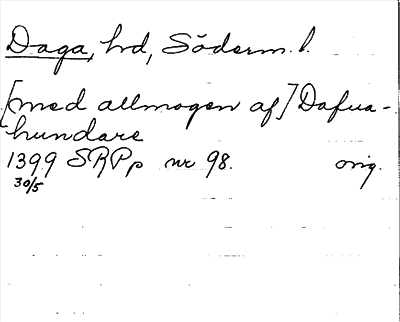 Daga, hd, Söderm. l.
[med allmogen af] Dafua-
hundare
1399 SRPp nr 98. orig.
30/5